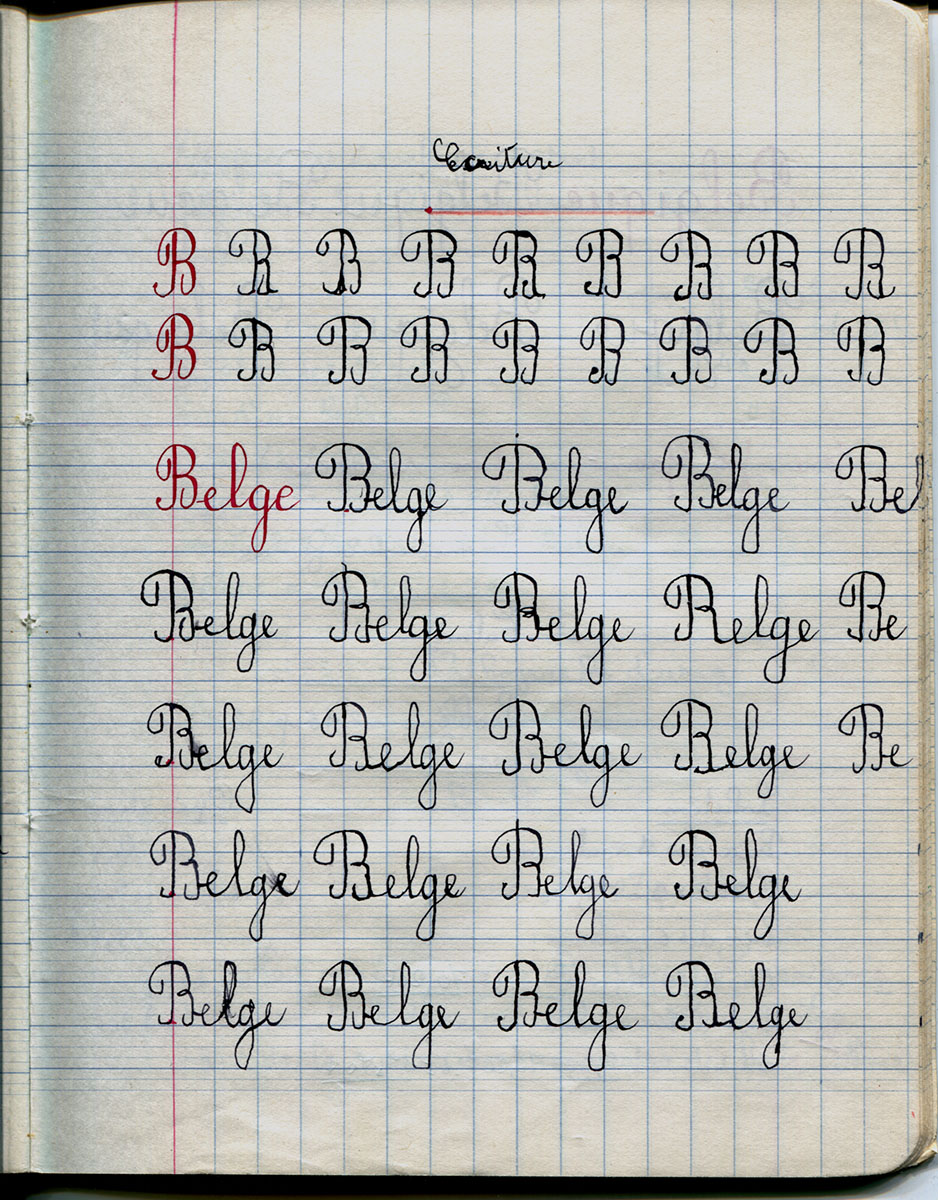 Ecriture
B B B B B B B B B
B B B B B B B B B
Belge Belge Belge Belge Bel
Belge Belge Belge Belge Be
Belge Belge Belge Belge Be
Belge Belge Belge Belge
Belge Belge Belge Belge